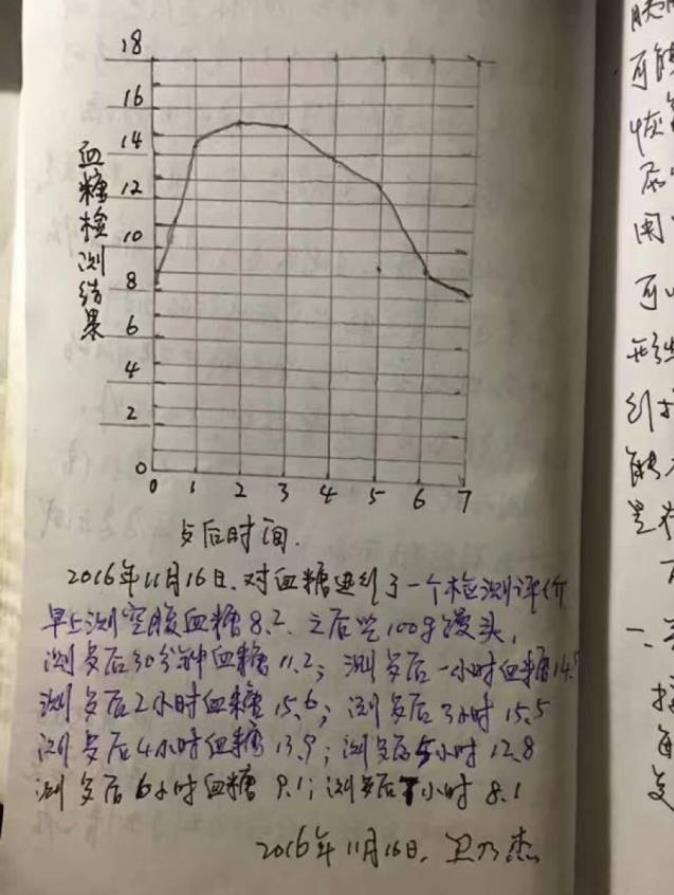 18
16
14
12
10
8
6
4
2
0
血糖检测结果
0 1 2 3 4 5 6 7
后时间.
2016年11月16日.对血糖进行了一个检测评价
早上测空腹血糖8.2.之后吃100g馒头,
测 后30分钟血糖11.2; 测 后一小时血糖14.
测 后2小时血糖15.6; 测 后3小时15.5
测 后4小时血糖13.9; 测 后5小时12.8
测 后6小时血糖9.1; 测 后7小时8.1
2016年11月16日. 卫乃杰